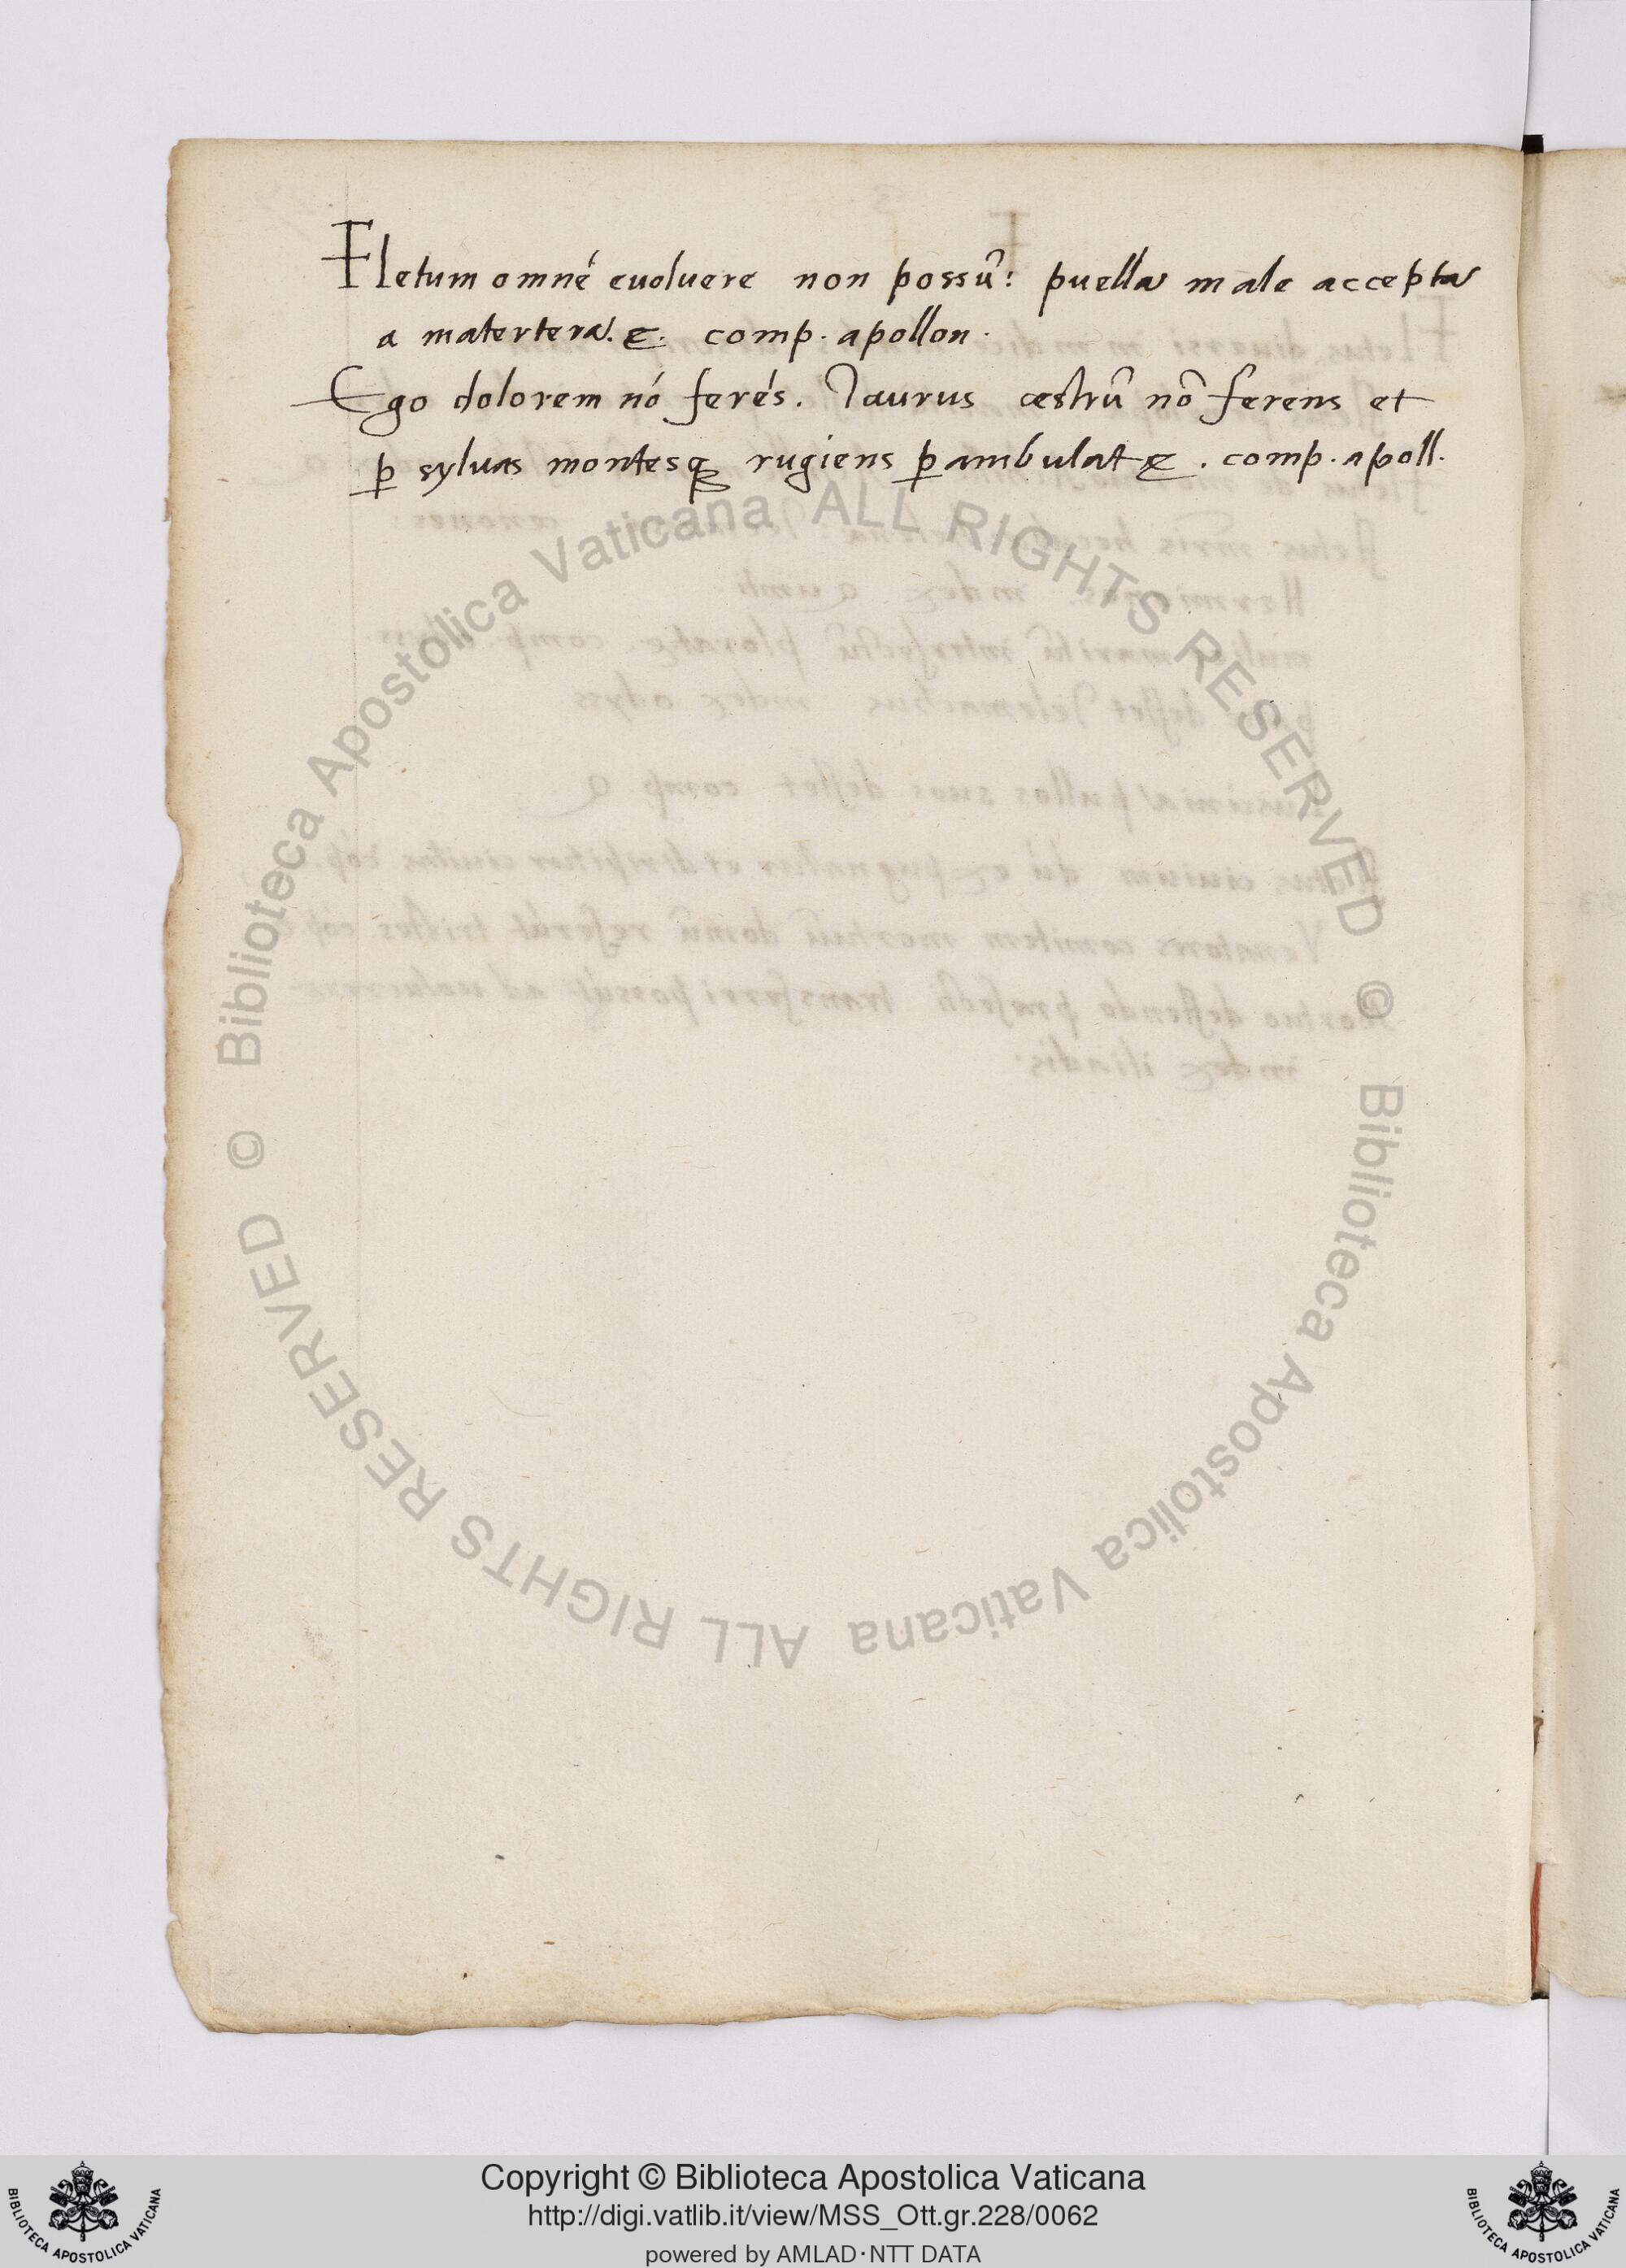 Fletum omné evoluere non possũ: puella male accepta
a matertera. e. comp. apollon.
Ego dolorem nó ferés. Taurus œstrũ nõ ferens et
ꝑ syluas montesqꝫ rugiens ꝑambulat ę. comp. apoll.
Biblioteca Apostolica Vaticana ALL RIGHTS RESERVED ©
Biblioteca Apostolica Vaticana ALL RIGHTS RESERVED ©
Copyright © Biblioteca Apostolica Vaticana
http://digi.vatlib.it/view/MSS_Ott.gr.228/0062
powered by AMLAD·NTT DATA
BIBLIOTECA APOSTOLICA VATICANA
BIBLIOTECA APOSTOLICA VATICANA